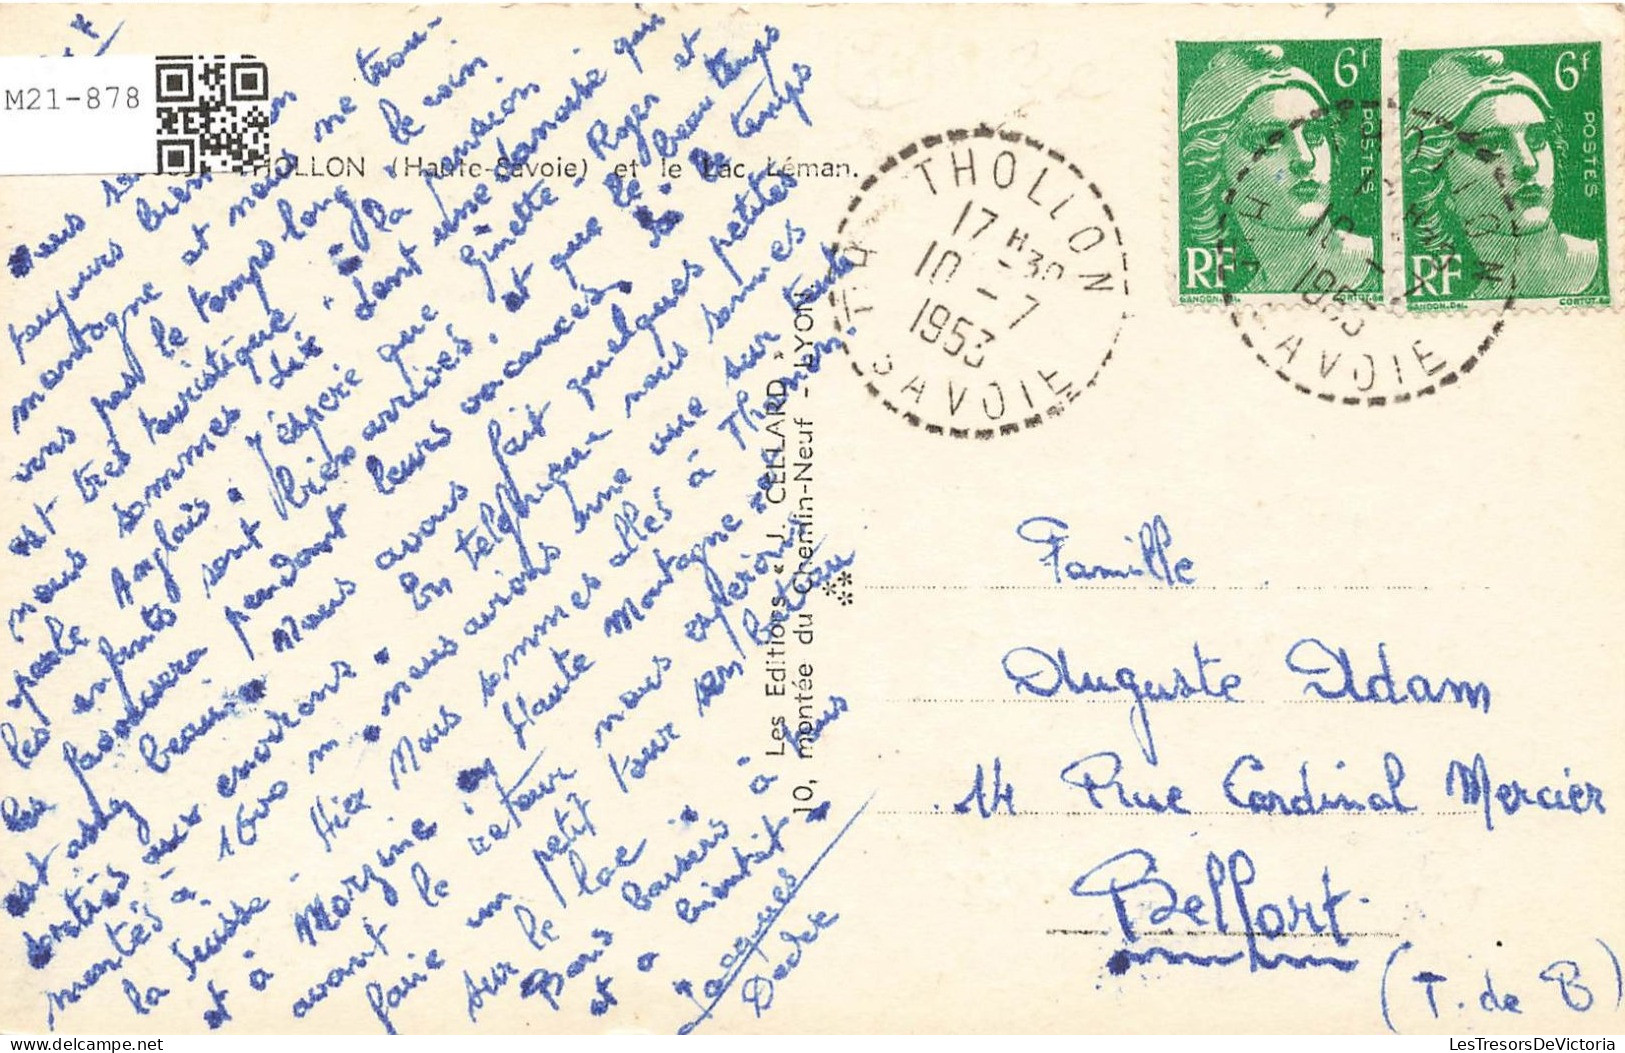 M21-878
THOLLON (Haute-Savoie) et le Lac Léman.
toujours bien
montagne et nous ne trou-
vons pas le temps long, le coin
est très touristique. à la pension
nous sommes dix dont une damoisé qui
parle Anglais. J'espère que Ginette, Roger et
les enfants sont bien arrivés, et que le beau temps
la pendant leurs vacances. Ici le temps
est assez beau. Nous avons fait quelques petites
sorties aux environs. En téléphérique nous sommes
montés à 1600 m nous avions une vue sur toute
la Suisse. Hier nous sommes allés à Thonon
et à Morzine en Haute Montagne
avant le retour nous espérons
faire un petit tour en bateau
sur le lac.
Bons baisers à tous
et à bientôt
Jacques
Dédée
Les Editions « J. CELLARD »
10, montée du Chemin-Neuf - LYON
6f
POSTES
RF
GANDON.Del.
CORTOT.Sc
6f
POSTES
RF
GANDON.Del.
CORTOT.Sc
THOLLON
17 H 30
10 - 7
1953
HTE SAVOIE
Famille
Auguste Adam
14 Rue Cardinal Mercier
Belfort
(T. de B)
LesTresorsDeVictoria